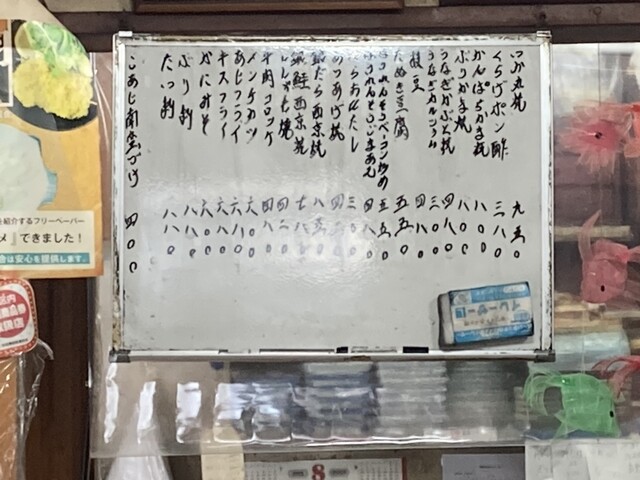 いか丸焼 九五〇
くらげポン酢 三八〇
かんぱちかま焼 八〇〇
ぶりかま焼 八〇〇
うなぎかぶと焼 四八〇
うなぎカルシウム 三〇〇
枝豆 四八〇
たぬき豆腐 五五〇
ほうれんそうベーコン炒め 五五〇
ほうれんそうごまあえ 四八〇
おひたし 三〇〇
あつあげ焼 四二〇
銀だら西京焼 八五〇
銀鮭西京焼 七八〇
ししゃも焼 四二〇
牛肉コロッケ 四八〇
メンチカツ 六〇〇
あじフライ 六八〇
キスフライ 六八〇
かにみそ 六〇〇
ぶり刺 八八〇
たい刺 八八〇
こあじ南蛮づけ 四〇〇
を紹介するフリーペーパー
メ』できました！
合は安心を提供します。
区内
8